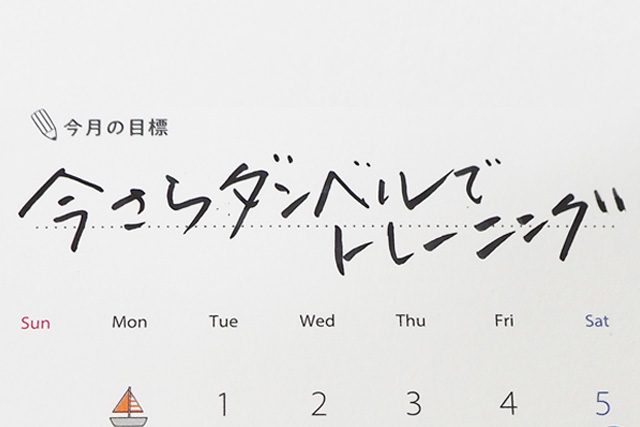 今月の目標
今さらダンベルで
トレーニング
Sun Mon Tue Wed Thu Fri Sat
1 2 3 4 5